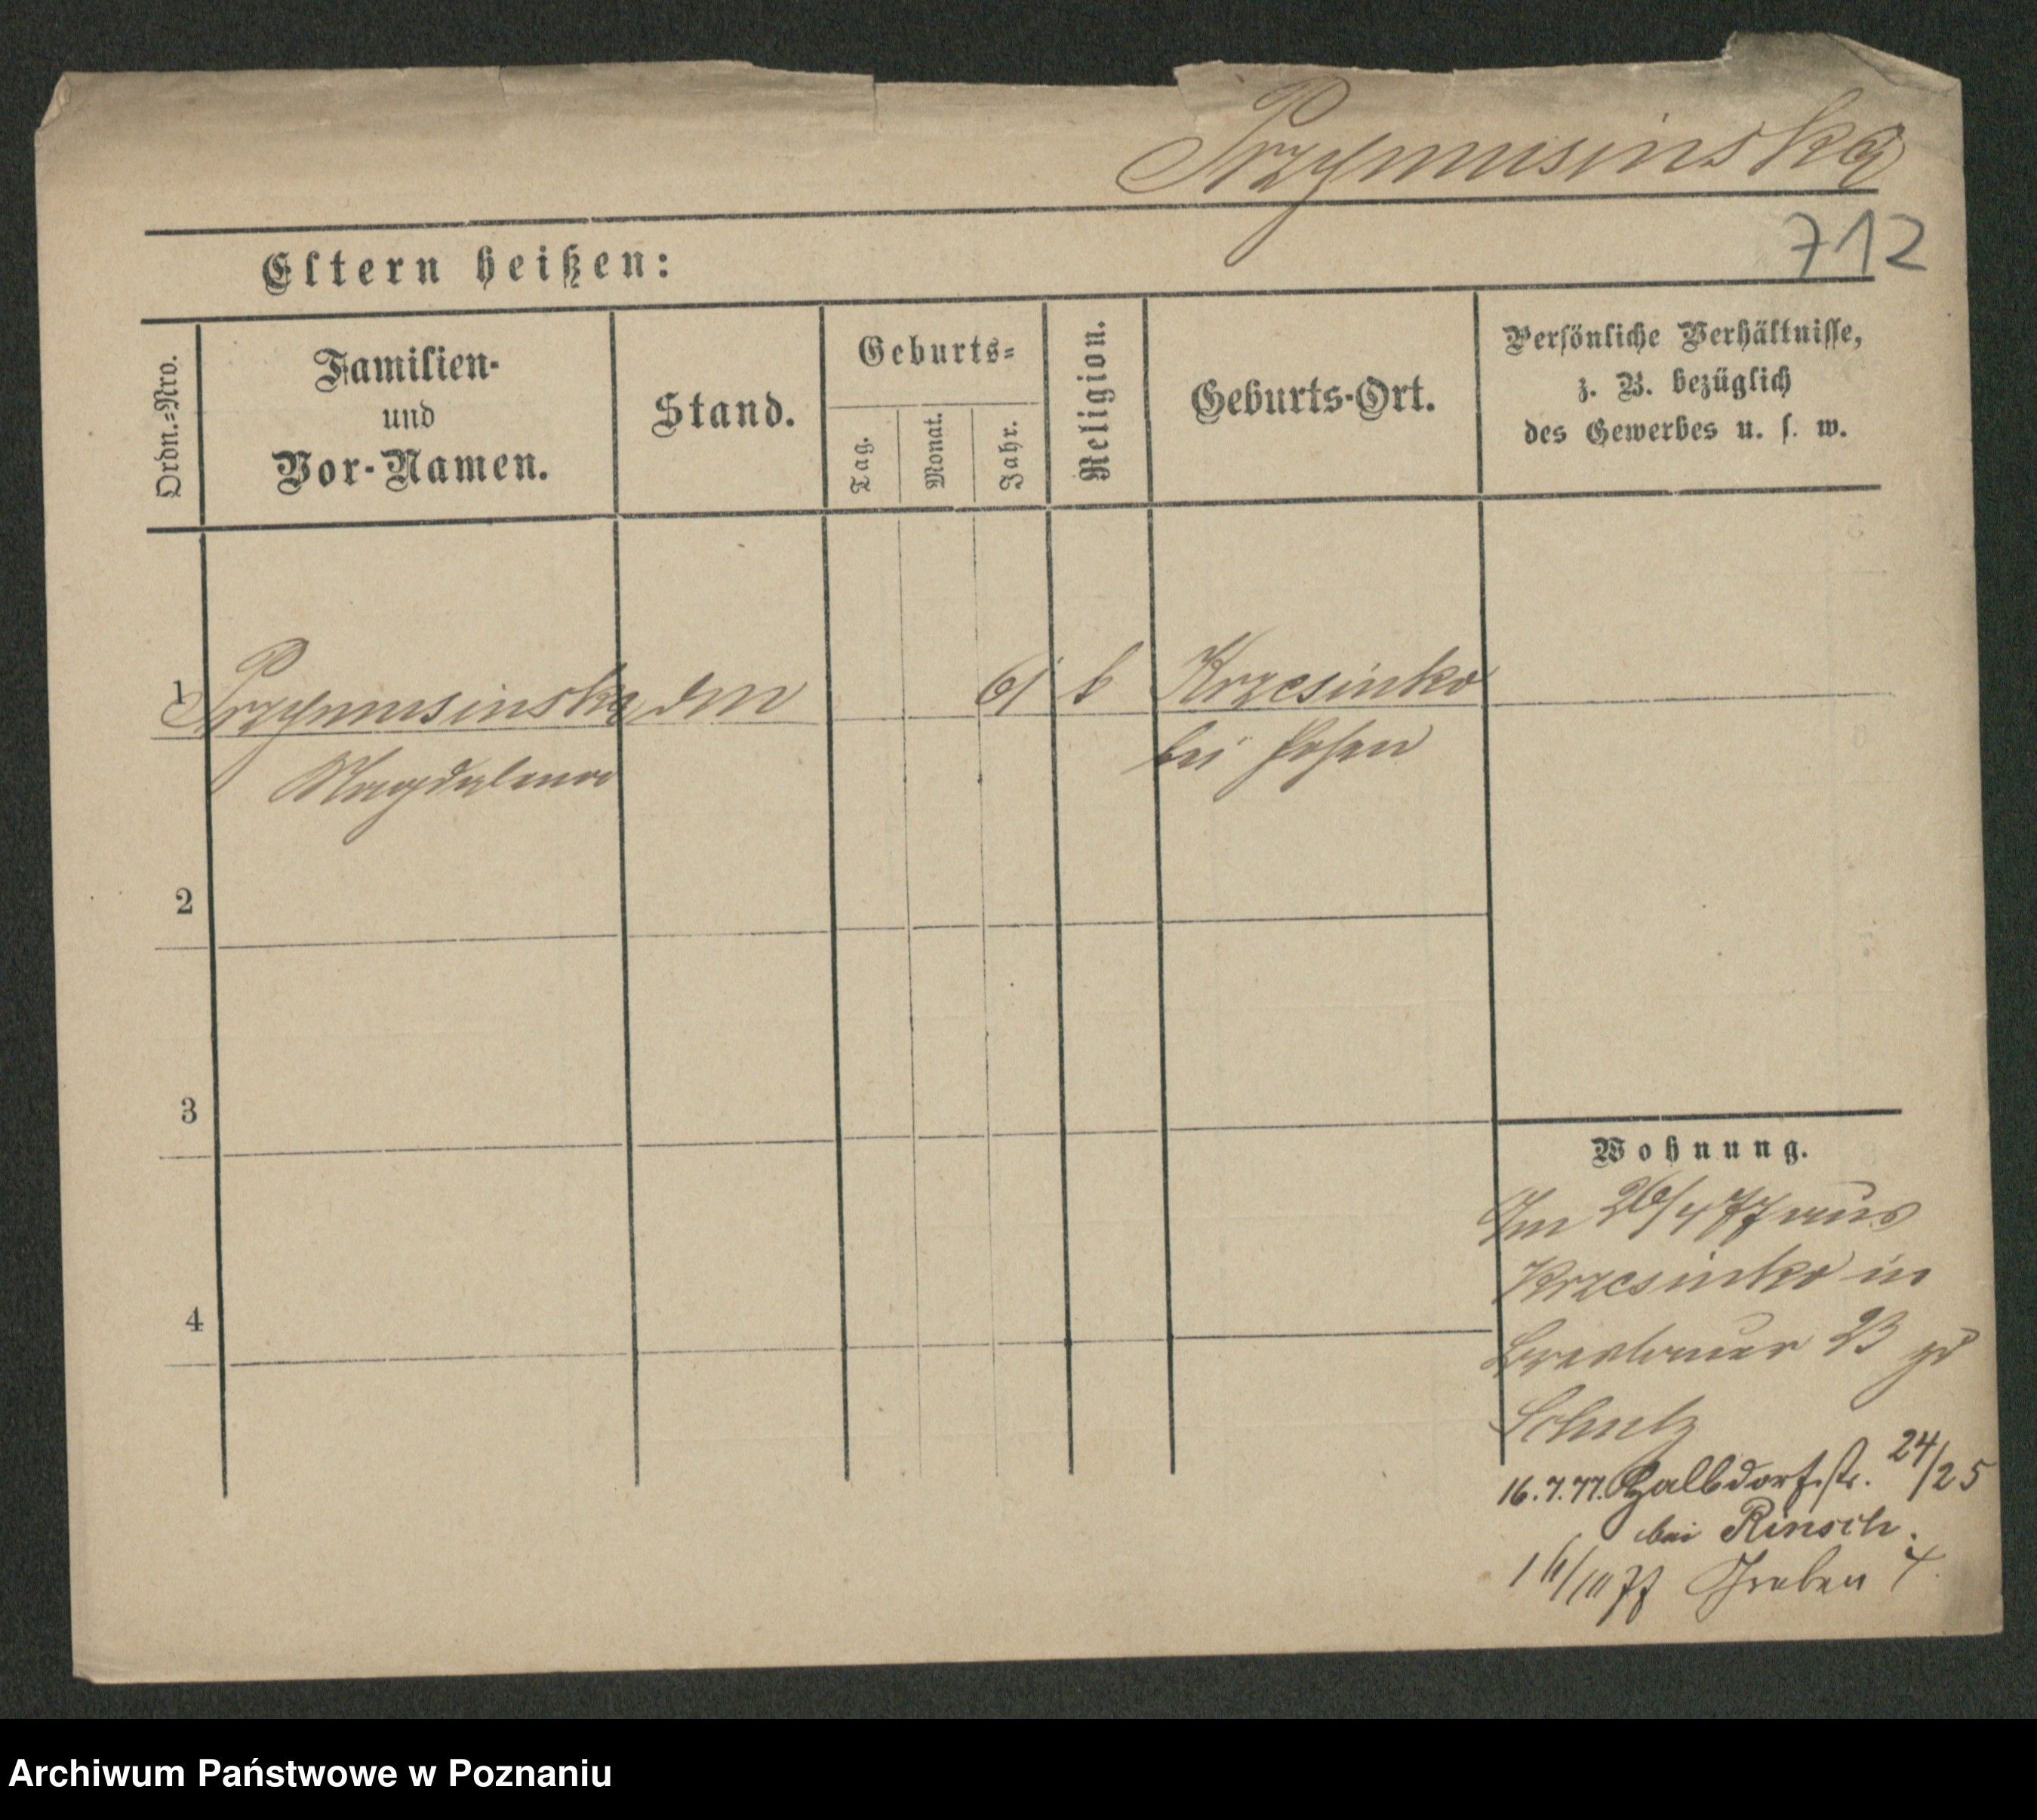 Przymusinska
712
Eltern heißen:
Ordn.-Nro.
Familien-
und
Vor-Namen.
Stand.
Geburts-
Tag.
Monat.
Jahr.
Religion.
Geburts-Ort.
Persönliche Verhältnisse,
z. B. bezüglich
des Gewerbes u. s. w.
1 Przymusinska dm 61 k Krzesinko
Magdalena bei Posen
2
3
4
Wohnung.
Im 26/4 77 aus
Krzesinko in
Breslauer 23 
Schulz
16.7.77. Halbdorfstr. 24/25
bei Rinsch.
77 Graben 4.
Archiwum Państwowe w Poznaniu